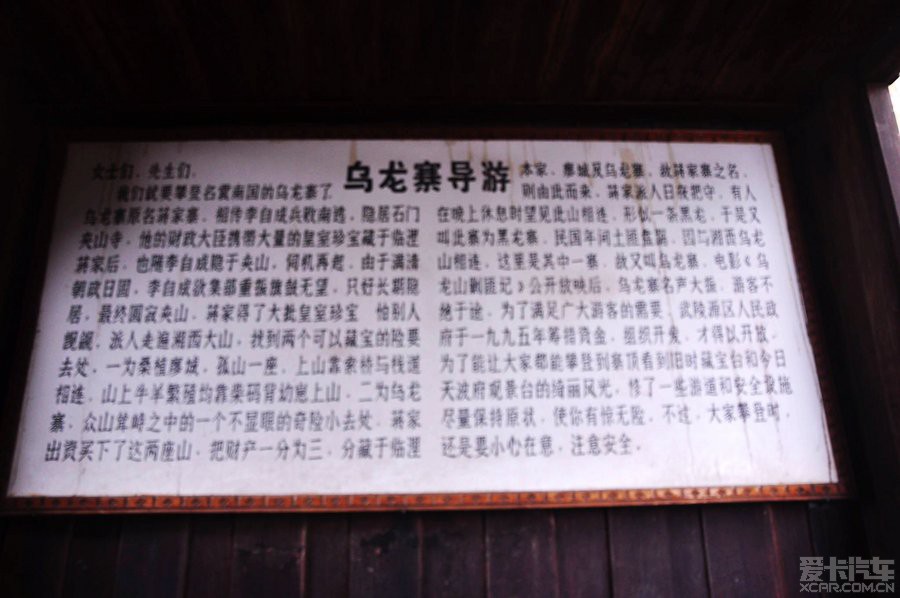 乌龙寨导游
女士们、先生们，
我们就要攀登名震南国的乌龙寨了
乌龙寨原名蒋家寨，相传李自成兵败南逃，隐居石门
夹山寺，他的财政大臣携带大量的皇室珍宝藏于临澧
蒋家后，也随李自成隐于夹山，伺机再起，由于满清
朝政日固，李自成欲集部重振旗鼓无望，只好长期隐
居，最终圆寂夹山，蒋家得了大批皇室珍宝 怕别人
觊觎，派人走遍湘西大山，找到两个可以藏宝的险要
去处，一为桑植廖城，孤山一座，上山靠索桥与栈道
相连，山上牛羊繁殖均靠柴码背幼崽上山，二为乌龙
寨，众山耸峙之中的一个不显眼的奇险小去处，蒋家
出资买下了这两座山，把财产一分为三，分藏于临澧
本家，寨城及乌龙寨，故蒋家寨之名，
则由此而来，蒋家派人日夜把守，有人
在晚上休息时望见此山相连，形似一条黑龙，于是又
叫此寨为黑龙寨，民国年间土匪盘踞，因与湘西乌龙
山相连，这里是其中一寨，故又叫乌龙寨，电影《乌
龙山剿匪记》公开放映后，乌龙寨名声大振，游客不
绝于途，为了满足广大游客的需要，武陵源区人民政
府于一九九五年筹措资金，组织开发，才得以开放，
为了能让大家都能攀登到寨顶看到旧时藏宝台和今日
天波府观景台的绮丽风光，修了一些游道和安全设施
尽量保持原状，使你有惊无险，不过，大家攀登时，
还是要小心在意，注意安全。
爱卡汽车
XCAR.COM.CN